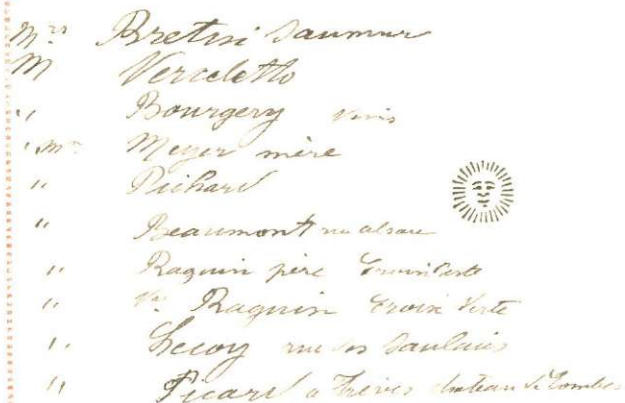 Mrs Bretini Saumur
M Verceletto
" Bourgery vins
" Mme Meyer mère
" Richard
" Beaumont rue alsace
" Raquin père Croix Verte
" Vve Raquin Croix Verte
" Lecoy rue des Saulaies
" Picard à Trèves château de